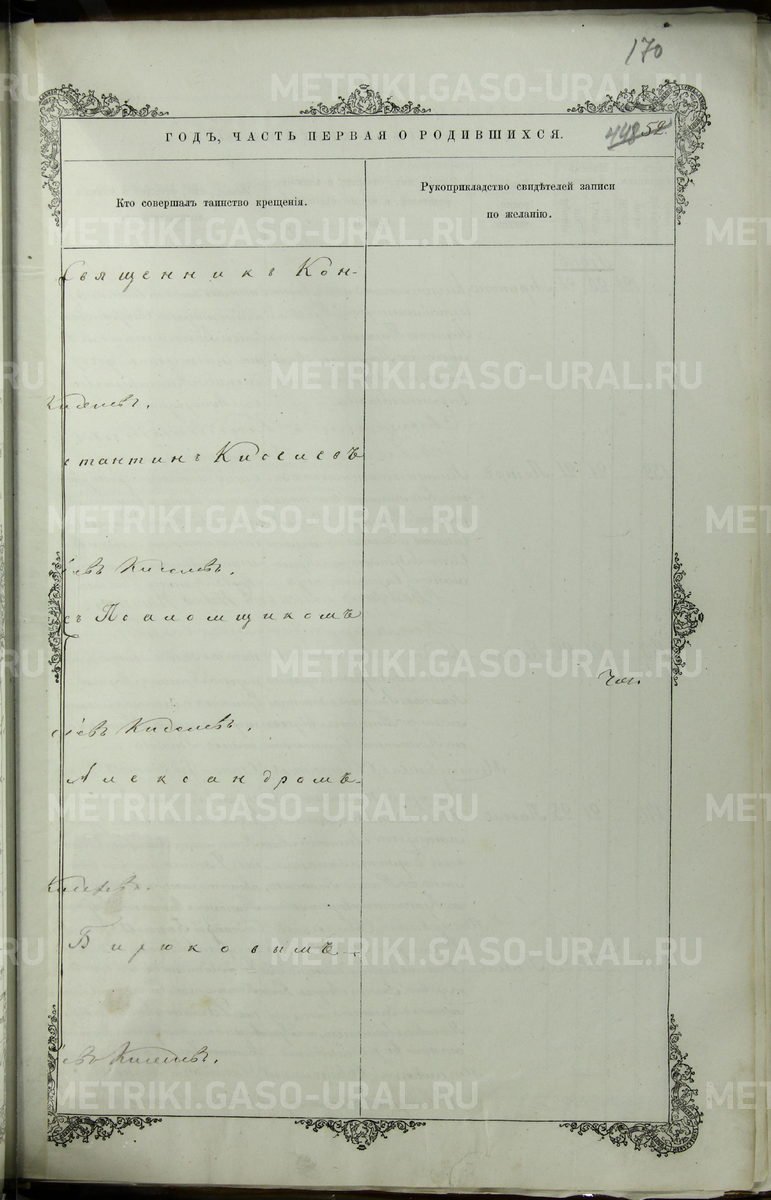 170
ГОДЪ, ЧАСТЬ ПЕРВАЯ О РОДИВШИХСЯ.
448 52.
Кто совершалъ таинство крещенія.
Рукоприкладство свидѣтелей записи
по желанію.
Священникъ Кон-
Киселевъ.
стантинъ Киселевъ
евъ Киселевъ.
съ Псаломщикомъ
евъ Киселевъ.
Александромъ
Киселевъ.
Бирюковымъ.
евъ Киселевъ.
METRIKI.GASO-URAL.RU